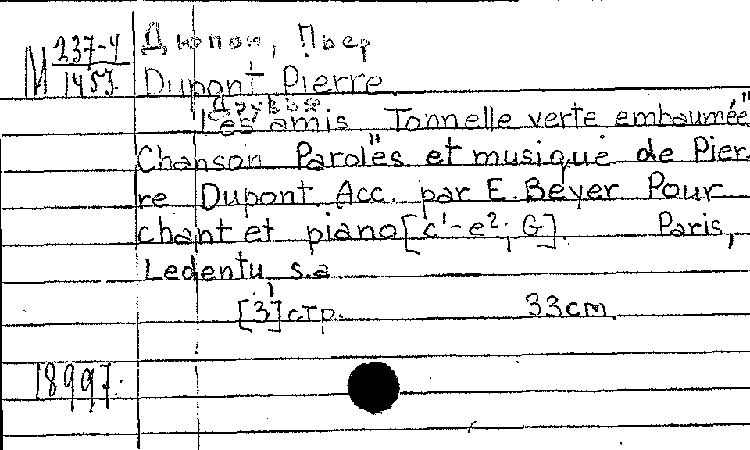 М 237-4 Дюпон, Пьер
1453 Dupont Pierre
Друзья
Les amis Tonnelle verte embaumée"
Chanson Paroles et musique de Pier
re Dupont Acc. par E. Beyer Pour
chant et piano [c¹-e²; G]. Paris,
Ledentu s.a
[3] стр. 33 cm.
18997.